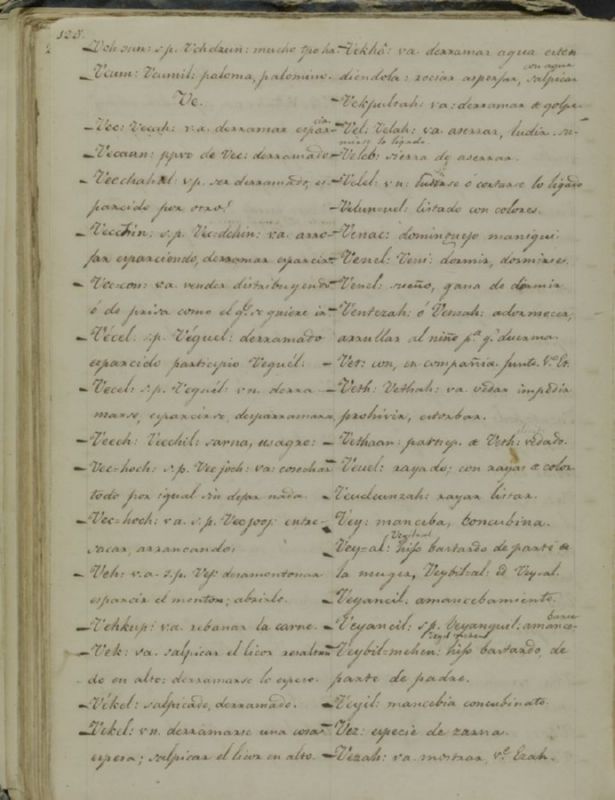 125.
Vch sun: s.p. Vchdzun: mucho tpo ha
Vcum: Vcumil: paloma, palomino.
Ve.
Vec: Vecah: v.a. derramar esparcir
Vecaan: ppvo de Vec: derramado
Vecchahal: v.p. ser derramado, es-
parcido por otro.
s.p. Vec-dchin: va. arro-
jar esparciendo, derramar esparcir
Vec-con: va. vender distribuyendo
ó de prisa como el q.e se quiere ir
Vécel: s.p. Véguel: derramado
esparcido participio Veguél.
Vecel: s.p. Veguél: vn. derra-
marse, esparcirse, desparramarse
Veech: Veechil: sarna, usagre:
Vec-hoch: s.p. Vec joch: va: cosechar
todo por igual sin dejar nada.
Vec-hoch: v.a. s.p. Vec jooj: entre-
sacar, arrancando:
Veh: v.a. s.p. Vej: desamontonar
esparcir el monton; abrirlo.
Vehkup: v.a. rebanar la carne.
Vek: va. salpicar el licor resaltan-
do en alto: derramarse lo espeso.
Vékel: salpicado, derramado.
Vekel: vn. derramarse una cosa
espesa; salpicar el licor en alto.
Vekhá: va. derramar agua exten
con agua
diendola: rociar asperjar, salpicar
Vekpulzah: va: derramar de golpe.
Vel: Velah: va. aserrar, ludir su-
Veleb: sierra de aserrar.
Velel: vn: ludirse ó cortarse lo ligado
listado con colores.
Venac: dominguejo maniqui
Venel: Veni: dormir, dormirse.
Venel: sueño, gana de dormir
Ventezah: ó Venzah: adormecer,
arrullar al niño p.a q.e duerma
Vet: con, en compañia junto. V.e Et.
Veth: Vethah: va. vedar impedir
prohivir, estorbar.
Vethaan: particip. de Veth: vedado.
Veuel: rayado; con rayas de color
rayar listar.
Vey: manceba, concubina.
Vey-al: hijo bastardo de parte de
la muger, Veybil-al: id Vey-al.
Veyancil: amancebamiento.
Veyancil: s.p. Veyanguil: amance-
barse
Veybil-mehen: hijo bastardo, de
parte de padre.
Veyil: mancebia concubinato.
Vez: especie de zarna.
Vezah: va. mostrar, V.e Ezah.